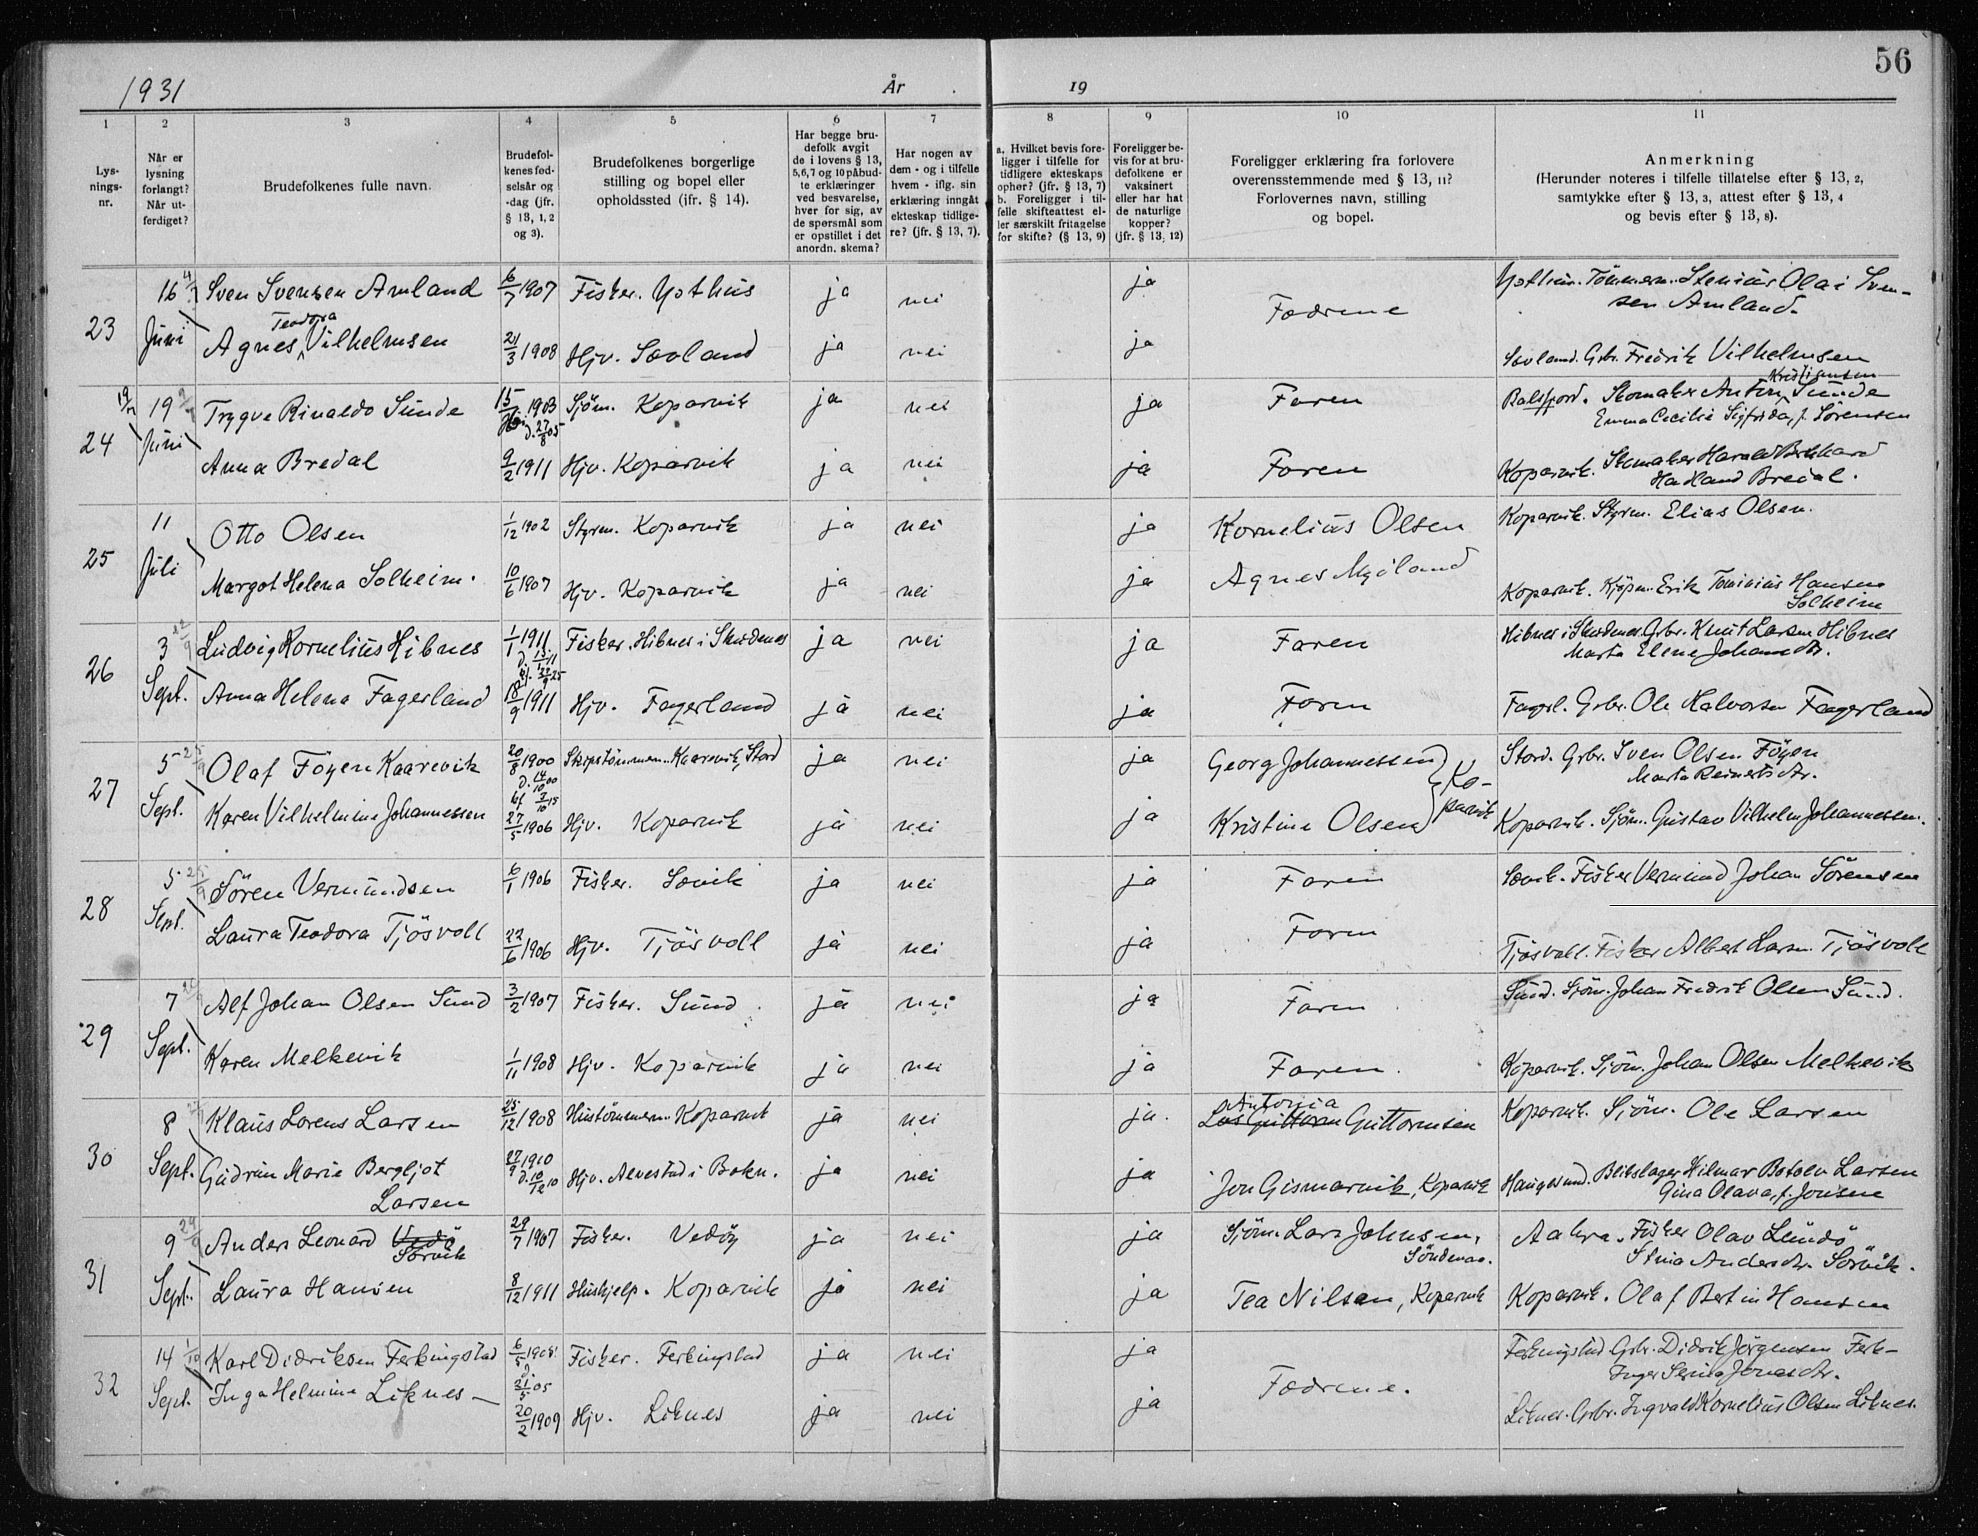 56
1931 År 19
1 2 3 4 5 6 7 8 9 10 11
Lysnings-nr.
Når er lysning forlangt? Når utferdiget?
Brudefolkenes fulle navn.
Brudefolkenes fødselsår og -dag (jfr. § 13, 1, 2 og 3).
Brudefolkenes borgerlige stilling og bopel eller opholdssted (jfr. § 14).
Har begge brudefolk avgit de i lovens § 13, 5, 6, 7 og 10 påbudte erklæringer ved besvarelse, hver for sig, av de spørsmål som er opstillet i det anordn. skema?
Har nogen av dem - og i tilfelle hvem - iflg. sin erklæring inngått ekteskap tidligere? (jfr. § 13, 7).
a. Hvilket bevis foreligger i tilfelle for tidligere ekteskaps ophør? (jfr. § 13, 7) b. Foreligger i tilfelle skifteattest eller særskilt fritagelse for skifte? (§ 13, 9)
Foreligger bevis for at brudefolkene er vaksinert eller har hat de naturlige kopper? (jfr. § 13, 12)
Foreligger erklæring fra forlovere overensstemmende med § 13, 11? Forlovernes navn, stilling og bopel.
Anmerkning (Herunder noteres i tilfelle tillatelse efter § 13, 2, samtykke efter § 13, 3, attest efter § 13, 4 og bevis efter § 13, 8).
23 16 4/7 Juni Sven Svensen Amland 6/7 1907 Fisker. ja nei ja Fædrene Tømmerm. Stenius Olai Svensen Amland.
Agnes Teodora Vilhelmsen 21/3 1908 Hjv. Sævland ja nei ja Sævland. Grbr. Fredrik Vilhelmsen
24 19 Juni Trygve Rinaldo Sunde 15/ 1903 d. 27/8 05 Sjøm. Kopervik ja nei ja Faren Balsfjord. Skomaker Anton Kristiansen Sunde
Emma Cecilie Sigfrida, f. Sørensen
Anna Bredal 9/2 1911 Hjv. Kopervik ja nei ja Faren Kopervik. Skomaker Harald Hadland Bredal.
25 11 Juli Otto Olsen 1/12 1902 Styrm. Kopervik ja nei ja Kornelius Olsen Kopervik. Styrm. Elias Olsen.
Margot Helena Solheim. 10/6 1907 Hjv. Kopervik ja nei ja Agnes Myöland Kopervik. Kjøpm. Erik Tominius Hansen Solheim
26 3 22/9 Sept. Ludvig Kornelius Hibnes 1/1 1911 Fisker. Hibnes i Skudenes ja nei ja Faren Hibnes i Skudenes. Grbr. Knut Larsen Hibnes
Marta Elene Johansdtr.
Anna Helena Fagerland 18/9 1911 Hjv. Fagerland ja nei ja Faren Fagerl. Grbr. Ole Halvorsen Fagerland
27 5 25/9 Sept. Olaf Föyen Kaarevik 20/8 1900 d. 14/10 00 kf 3/10 15 Skipstømmerm. Kaarevik, Stord ja nei ja Georg Johannessen Kopervik Stord. Grbr. Sven Olsen Föyen
Marta Reinertsdtr.
Karen Vilhelmine Johannessen 27/5 1906 Hjv. Kopervik ja nei ja Kristine Olsen Kopervik. Sjøm. Gustav Vilhelm Johannessen.
28 5 25/9 Sept. Sören Vermundsen 6/1 1906 Fisker. Sævik ja nei ja Faren Sævik. Fisker Vermund Johan Sörensen
Laura Teodora Tjösvoll 22/6 1906 Hjv. Tjösvoll ja nei ja Faren Tjösvoll. Fisker Albert Larsen Tjösvoll
29 7 Sept. Alf Johan Olsen Sund 3/2 1907 Fisker. Sund ja nei ja Faren Sund. Sjøm. Johan Fredrik Olsen Sund.
Karen Melkevik 1/11 1908 Hjv. Kopervik ja nei ja Faren. Kopervik. Sjøm. Johan Olsen Melkevik
30 8 Sept. Klaus Lorens Larsen 25/12 1908 Hustömmerm. Kopervik ja nei ja. Antonia Guttormsen Kopervik. Sjøm. Ole Larsen
Gudrun Marie Bergljot Larsen 27/9 1910 d. 10/12 10 Hjv. Alvestad i Bokn. ja nei ja Jon Gismarvik, Kopervik Haugesund. Blikslager Hilmar Botolv Larsen
Gina Olava, f. Jonsen
31 9 29/9 Sept. Anders Leonard Vedö Sörvik 29/7 1907 Fisker. Vedöy ja nei ja Sjøm. Lars Johnsen, Söndenaa. Aakra. Fisker Olav Lundö
Stina Andersdtr. Sörvik.
Laura Hansen 8/12 1911 Hushjelp. Kopervik ja nei ja Tea Nilsen, Kopervik Kopervik. Olaf Bertin Hansen
32 14 1/10 Sept. Karl Didriksen Ferkingstad 6/5 1905 d. 21/5 05 Fisker. Ferkingstad ja nei ja Fædrene. Ferkingstad Grbr. Didrik Jørgensen Ferk-
Inger Serina Jonasdtr.
Inga Helmine Liknes 20/2 1909 Hjv. Liknes ja nei ja Liknes. Grbr. Ingvald Kornelius Olsen Liknes.